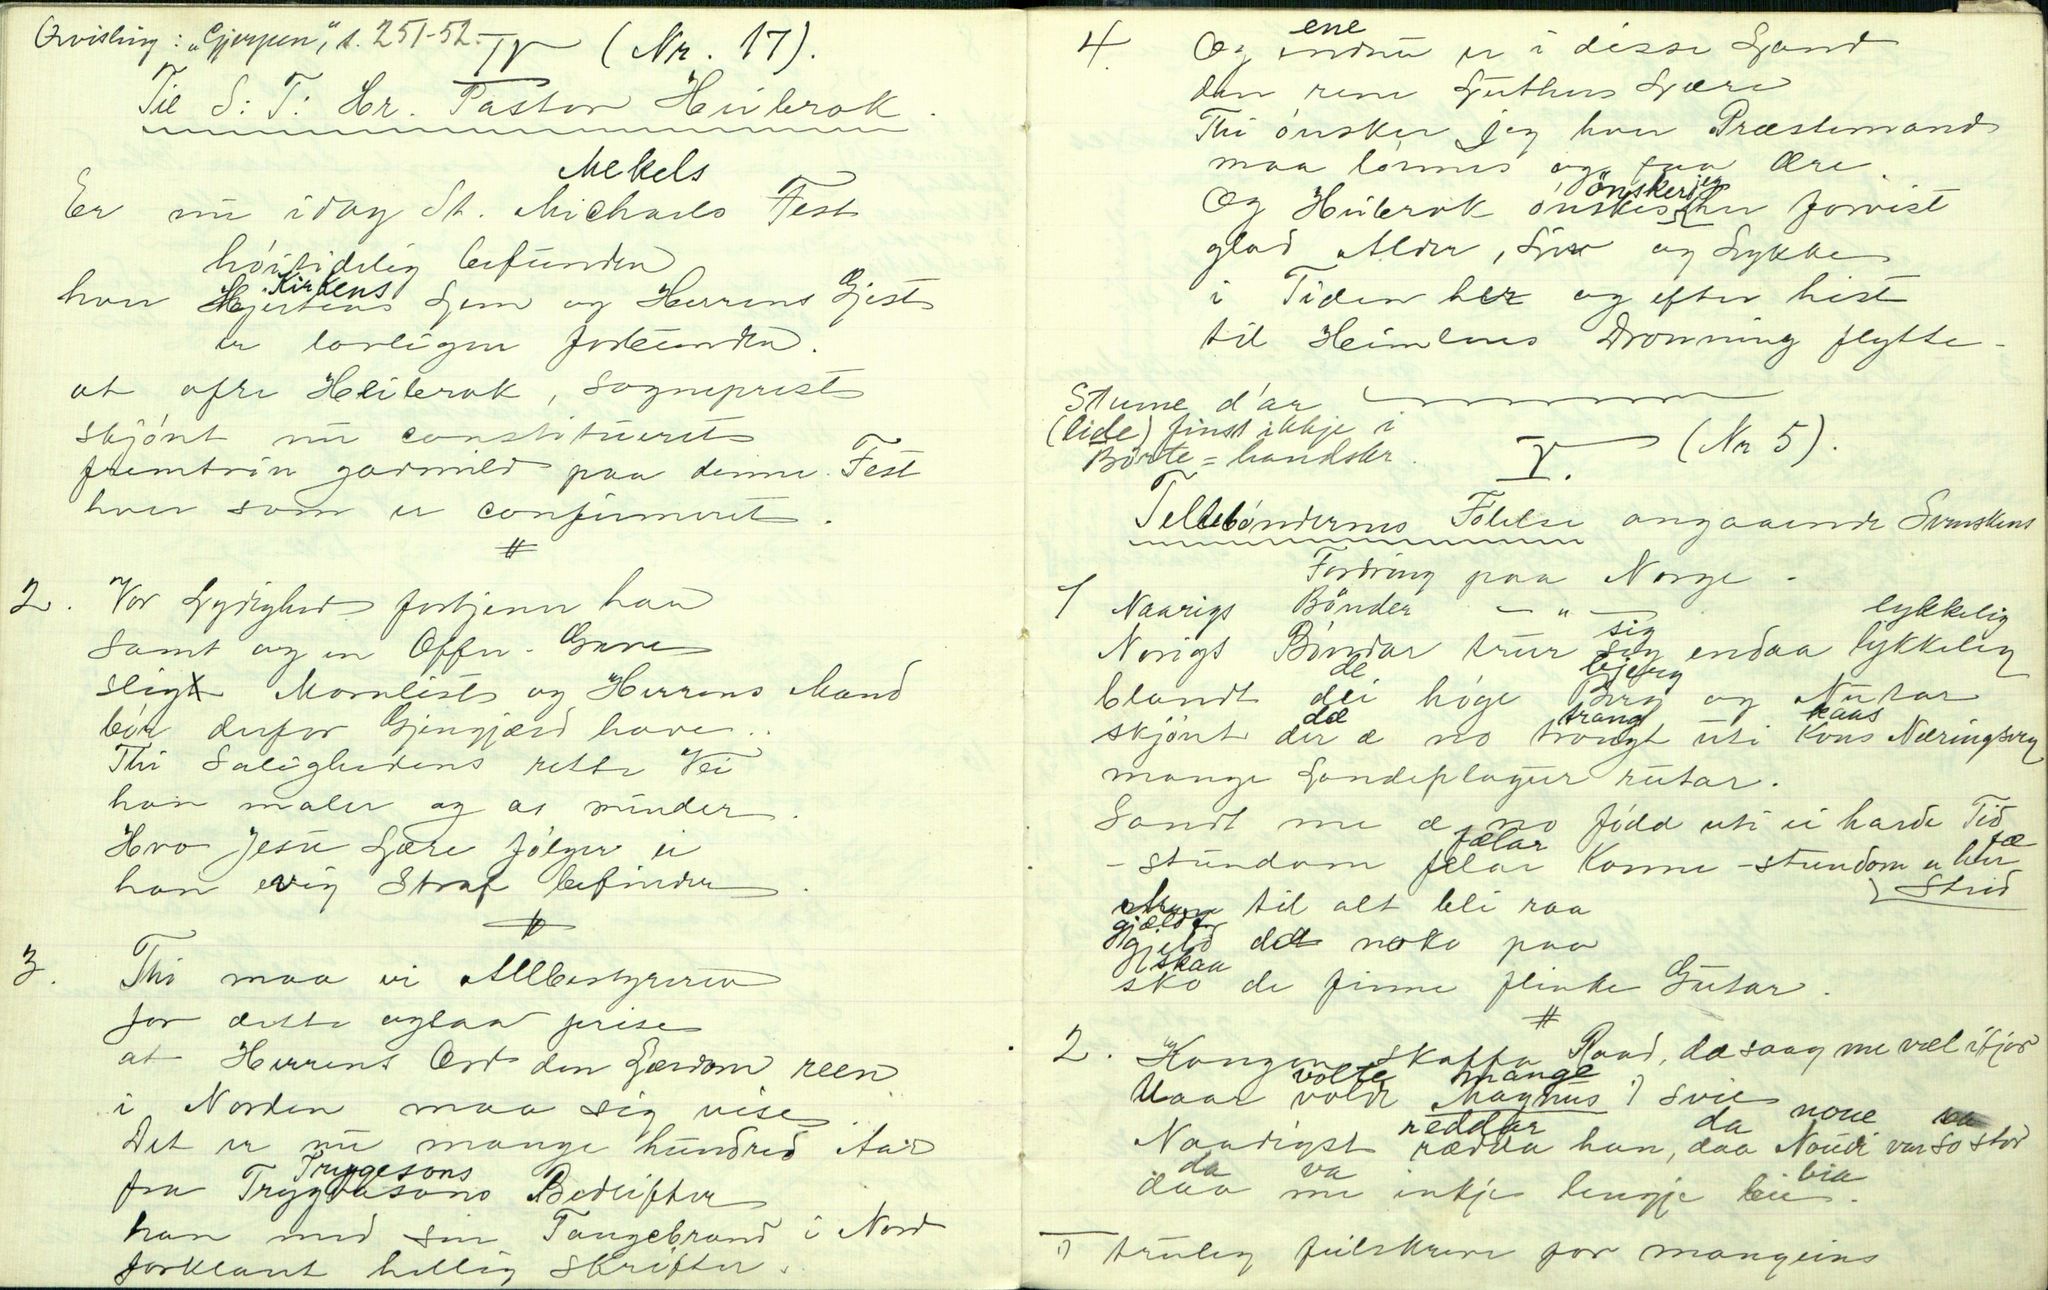 Qvisling: "Gjerpen", s. 251-52.
IV (Nr. 17).
Til S: T: Hr. Pastor Heibrok.
Mekels
Er nu idag St. Michaels Fest
höitidelig befunden
Kirkens
hver Hjertens Lem og Herrens Gjest
er lovligen forbunden.
at ofre Heibrok, sogneprest
skjönt nu constitueret
fremtrin godmild paa denne Fest
hver som er confirmeret.
#
2. Vor Lydighed fortjener han
samt og en Offer-Gave
sligt Mornlist og Herrens Mand
bör derfor Gjengjæld have..
Thi Salighedens rette Vei
han maler og os minder.
Hvo Jesu Lære fölger ei
han evig Straf befinder.
#
3. Thi maa vi Allbestyreren
for dette ogsaa prise
at Herrens Ord den Lærdom reen
i Norden maa sig vise
Det er nu mange hundred Aar
Tryggesons
fra Trygvasons Bedrifter
han med sin Tangebrand i Nord
forklart hellig Skrifter.
4. ene
Og endnu er i disse Land
den rene Luthers Lære
Thi önsker jeg hver Præstemand
maa lönnes og faa Ære.
önsker jeg
Og Heibrok önskes her forvist
glad Alder, Liv og Lykke
i Tiden her og efter hist
til Himlens Dronning flytte.
Stume d'ar
(lide) finst ikkje i
Börte=handskr.
V. (Nr 5).
Telleböndernes Fölelse angaaende Svenskens
Fordring paa Norge.
1 Naarigs Bönder — " — lykkelig
sig
Norigs Böndar trur seg endaa lykkeleg
de bjerg
blandt dei höge Berg og Nutar
dæ trang kaas
skjönt der æ no trongt uti Kvos Næringsveg
mange Landeplagur rutar.
Sandt me æ no född uti ei harde Tid
fælar tæ
– stundom felar Konne – stundom er her
Strid
Atrune til alt bli raa
gjælde
gjeld det noko paa
skaa
sko de finne flinke Gutar.
#
2. Kongen skaffa Raad, da saag me vel ifjor
volte mange
Uaar voldt Magnus 1) svie
reddar da noue va
Naadigst rædda han, daa Noudi var so stor
da va bia
daa me inkje lengje bie.
1) truleg feilskrive for mangeins